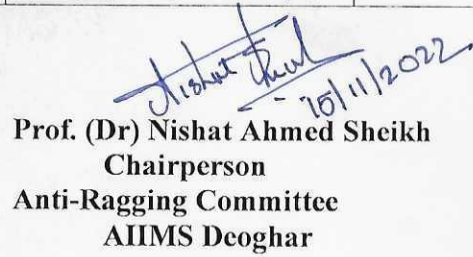 Nishat
15/11/2022
Prof. (Dr) Nishat Ahmed Sheikh
Chairperson
Anti-Ragging Committee
AIIMS Deoghar